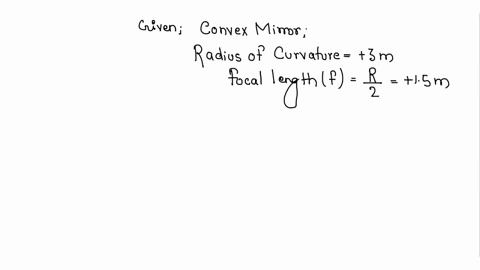 Given; Convex Mirror;
Radius of Curvature = +3m
focal length (f) = R/2 = +1.5m